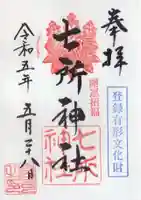 奉拝
登録有形文化財
七所神社
七所
神社
令和五年
五月二十八日